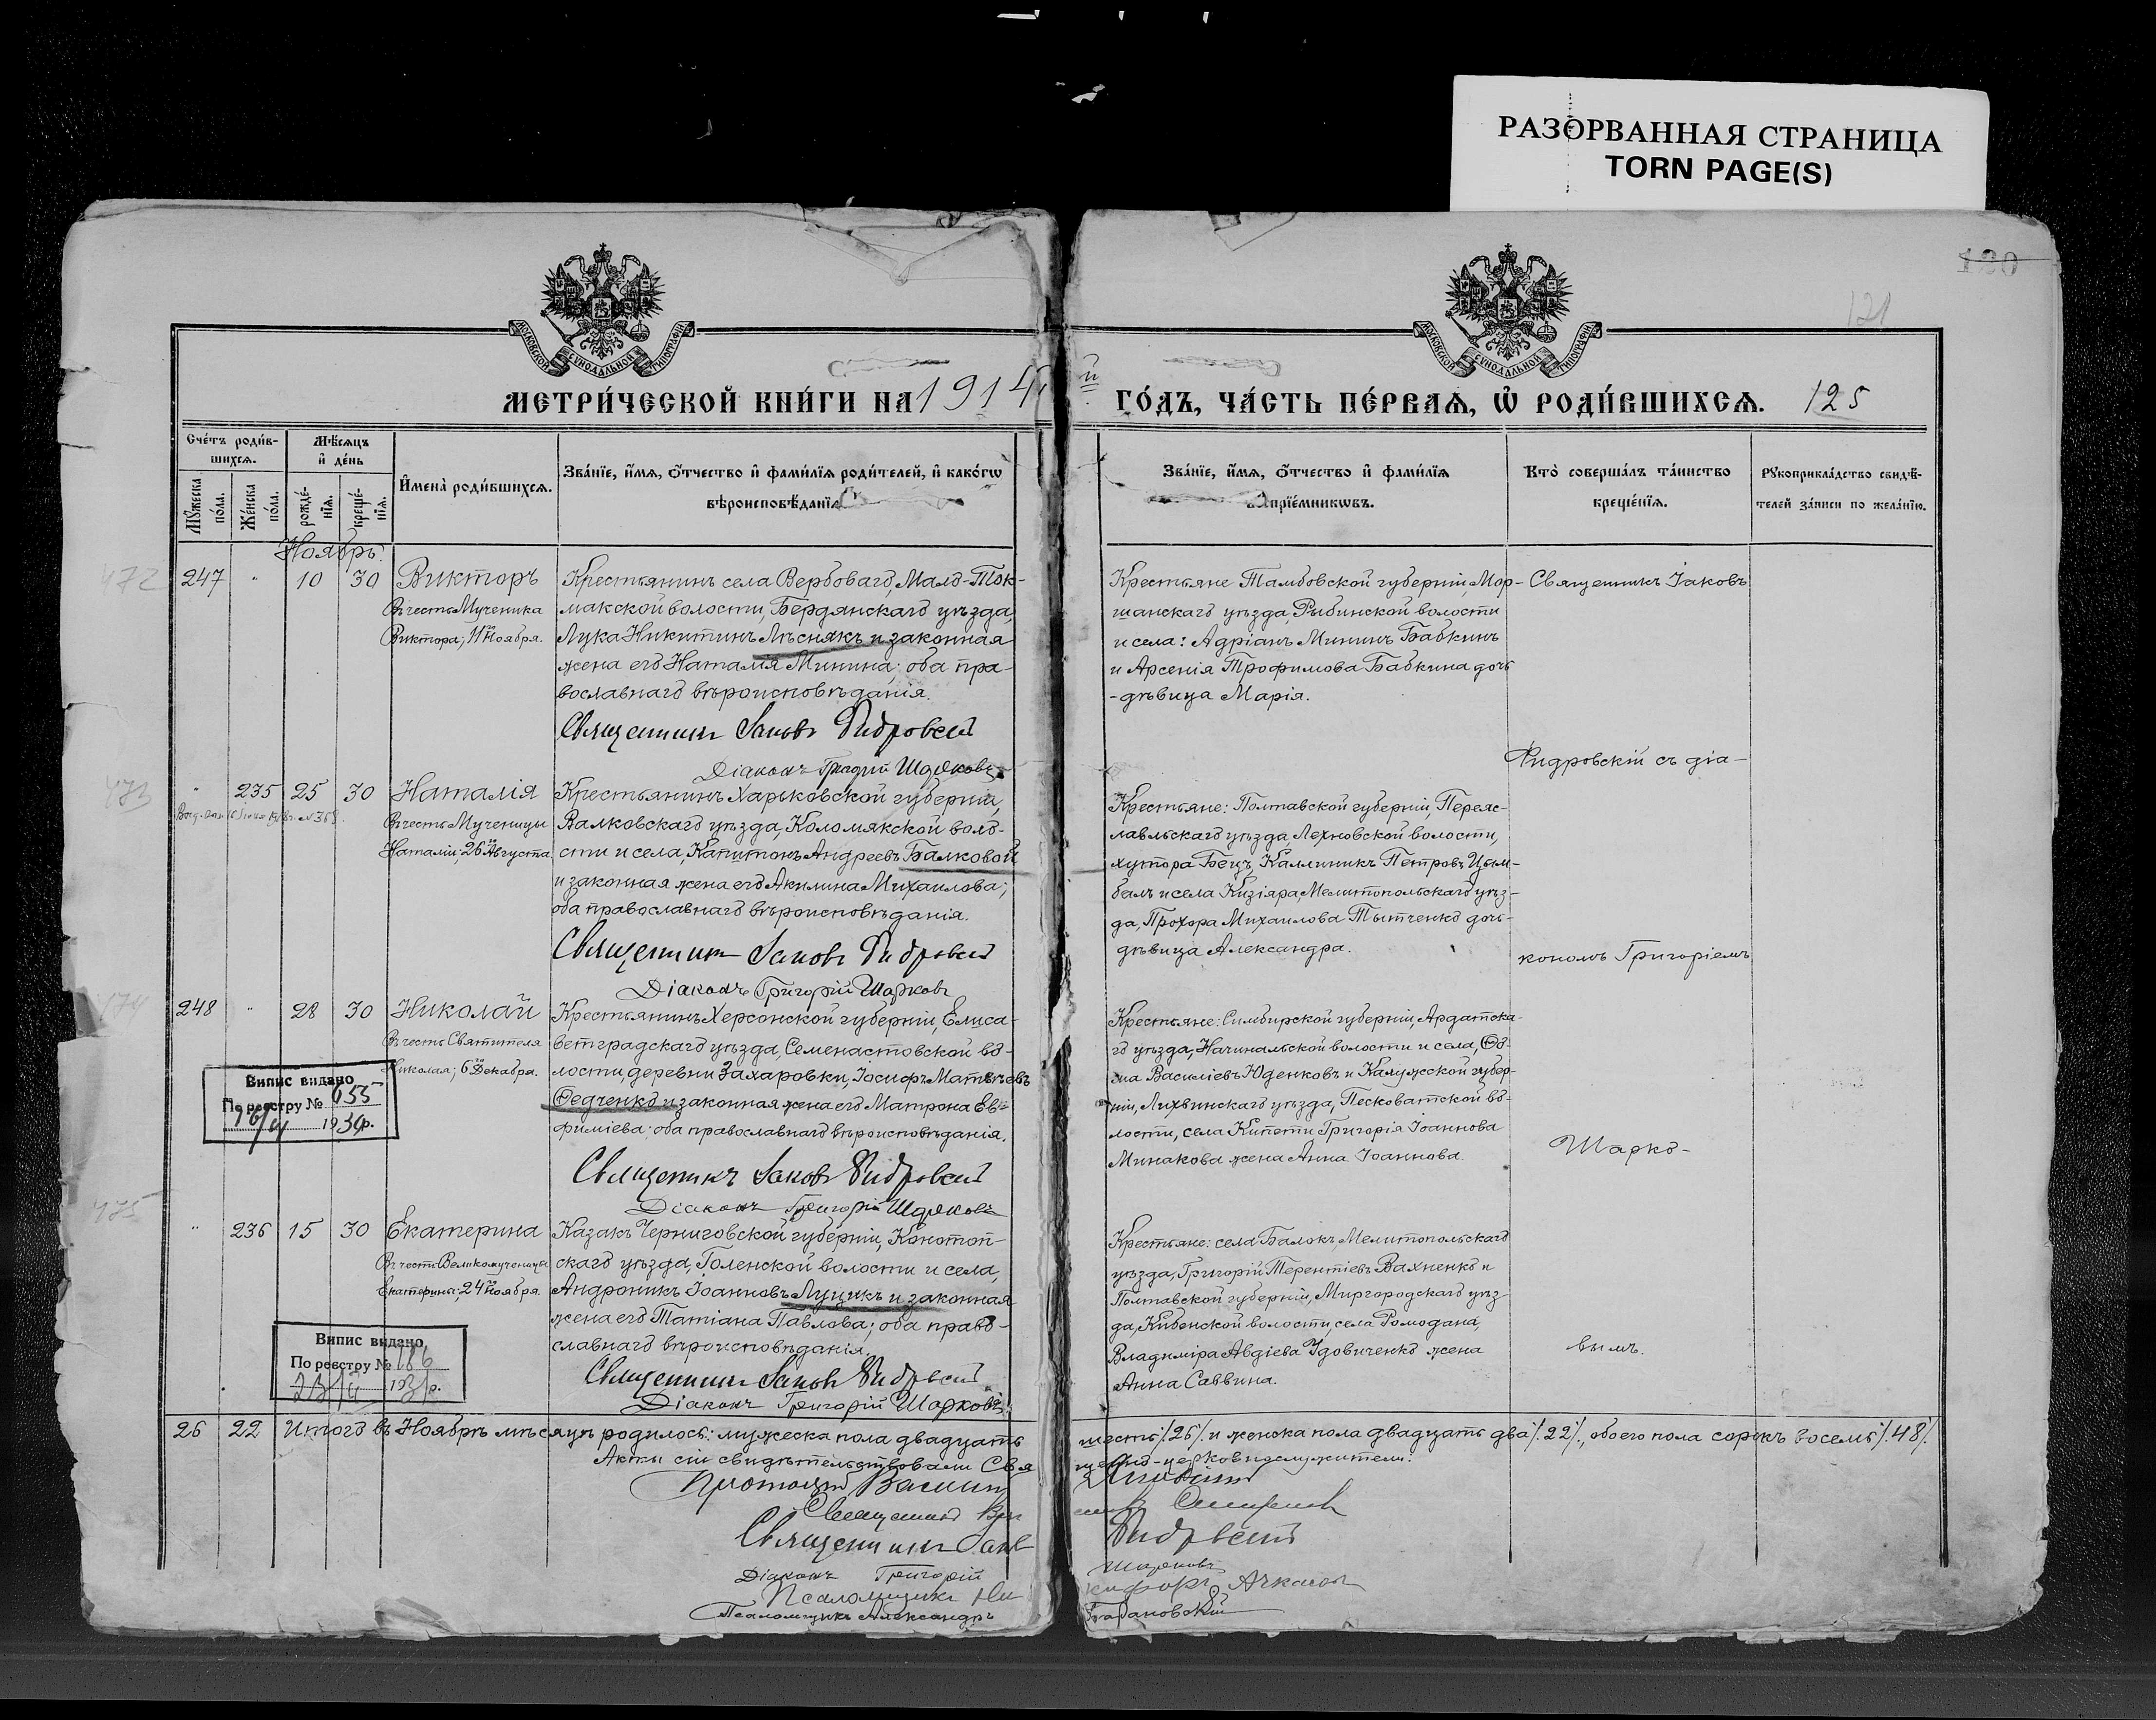 РАЗОРВАННАЯ СТРАНИЦА
TORN PAGE(S)
130
121
МОСКОВСКОЙ СУНОДАЛЬНОЙ ТИПОГРАФІИ
МОСКОВСКОЙ СУНОДАЛЬНОЙ ТИПОГРАФІИ
МЕТРИ́ЧЕСКОЙ КНИ́ГИ НА 1914
й ГО́ДЪ, ЧА́СТЬ ПЕ́РВАѦ, Ѡ҆ РОДИ́ВШИХСѦ. 125
Сче́тъ роди́в-
шихсѧ.
Мѣ́сѧцъ
и҆ де́нь
Мꙋ́жеска
по́ла.
Же́нска
по́ла.
рожде́-
нїѧ.
креще́-
нїѧ.
И҆мена̀ роди́вшихсѧ.
Зва́нїе, и҆́мѧ, ѻ҆́тчество и҆ фами́лїѧ роди́телей, и҆ како́гѡ
вѣроисповѣ́данїѧ
Зва́нїе, и҆́мѧ, ѻ҆́тчество и҆ фами́лїѧ
прїе́мникѡвъ.
Кто̀ соверша́лъ та́инство
креще́нїѧ.
Рꙋкоприкла́дство свидѣ́-
телей за́писи по жела́нїю.
Ноябрь.
472
247 " 10 30 Викторъ
Въ честь Мученика
Виктора; 11го Ноября.
Крестьянинъ села Вербоваго, Мало-Ток-
макской волости, Бердянскаго уѣзда,
Лука Никитинъ Лѣснякъ и законная
жена его Наталія Минина; оба пра-
вославнаго вѣроисповѣданія.
Священникъ Іаковъ Фидровскій
Діаконъ Григорій Шарковъ
Крестьяне Тамбовской губерніи, Мор-
шанскаго уѣзда, Рыбинской волости
и села: Адріанъ Мининъ Бабкинъ
и Арсенія Трофимова Бабкина дочь
-дѣвица Марія.
Священникъ Іаковъ
Фидровскій съ діа-
473
" 235 25 30 Наталія
Въ честь Мученицы
Наталіи; 26го Августа
Крестьянинъ Харьковской губерніи,
Валковскаго уѣзда, Коломякской воло-
сти и села, Капитонъ Андреевъ Балковой
и законная жена его Акилина Михаилова;
оба православнаго вѣроисповѣданія.
Священникъ Іаковъ Фидровскій
Діаконъ Григорій Шарковъ
Крестьяне: Полтавской губерніи, Переяс-
лавльскаго уѣзда, Лехновской волости,
хутора Бецъ, Каллиникъ Петровъ Цым-
балъ и села Кизіяра, Мелитопольскаго уѣз-
да, Прохора Михаилова Тытченко дочь-
дѣвица Александра.
кономъ Григоріемъ
474
248 " 28 30 Николай
Въ честь Святителя
Николая; 6го Декабря.
Випис видано
По реєстру № 455
16/VI 1939р.
Крестьянинъ Херсонской губерніи, Елиса-
ветградскаго уѣзда, Семенастовской во-
лости, деревни Захаровки, Іосифъ Матѳѣевъ
Ѳедченко и законная жена его Матрона Ев-
фиміева; оба православнаго вѣроисповѣданія.
Священникъ Іаковъ Фидровскій
Діаконъ Григорій Шарковъ
Крестьяне: Симбирской губерніи, Ардатска-
го уѣзда, Начинальской волости и села, Ѳо-
ма Василіевъ Юденковъ и Калужской губер-
ніи, Лихвинскаго уѣзда, Песковатской во-
лости, села Кипети Григорія Іоаннова
Минакова жена Анна Іоаннова.
Шарко-
475
" 236 15 30 Екатерина
Въ честь Великомученицы
Екатерины; 24го Ноября.
Випис видано
По реєстру № 186
193 р.
Казакъ Черниговской губерніи, Конотоп-
скаго уѣзда, Голенской волости и села,
Андроникъ Іоанновъ Луцикъ и законная
жена его Татіана Павлова; оба право-
славнаго вѣроисповѣданія.
Священникъ Іаковъ Фидровскій
Діаконъ Григорій Шарковъ
Крестьяне: села Балокъ, Мелитопольскаго
уѣзда, Григорій Терентіевъ Вахненко и
Полтавской губерніи, Миргородскаго уѣз-
да, Кибенской волости, села Ромодана,
Владиміра Авдіева Удовиченко жена
Анна Саввина.
вымъ.
26 22 Итого въ Ноябрѣ мѣсяцѣ родилось: мужеска пола двадцать
шесть /.26/. и женска пола двадцать два /.22/., обоего пола сорокъ восемь /.48/.
Акты сіи свидѣтельствовали Свя
щенно-церковнослужители:
Протоіерей Василій
Священникъ
Священникъ Іаковъ
Фидровскій
Діаконъ Григорій
Шарковъ
Псаломщикъ Ни
кифоръ Ачкасовъ
Псаломщикъ Александръ
Барановскій